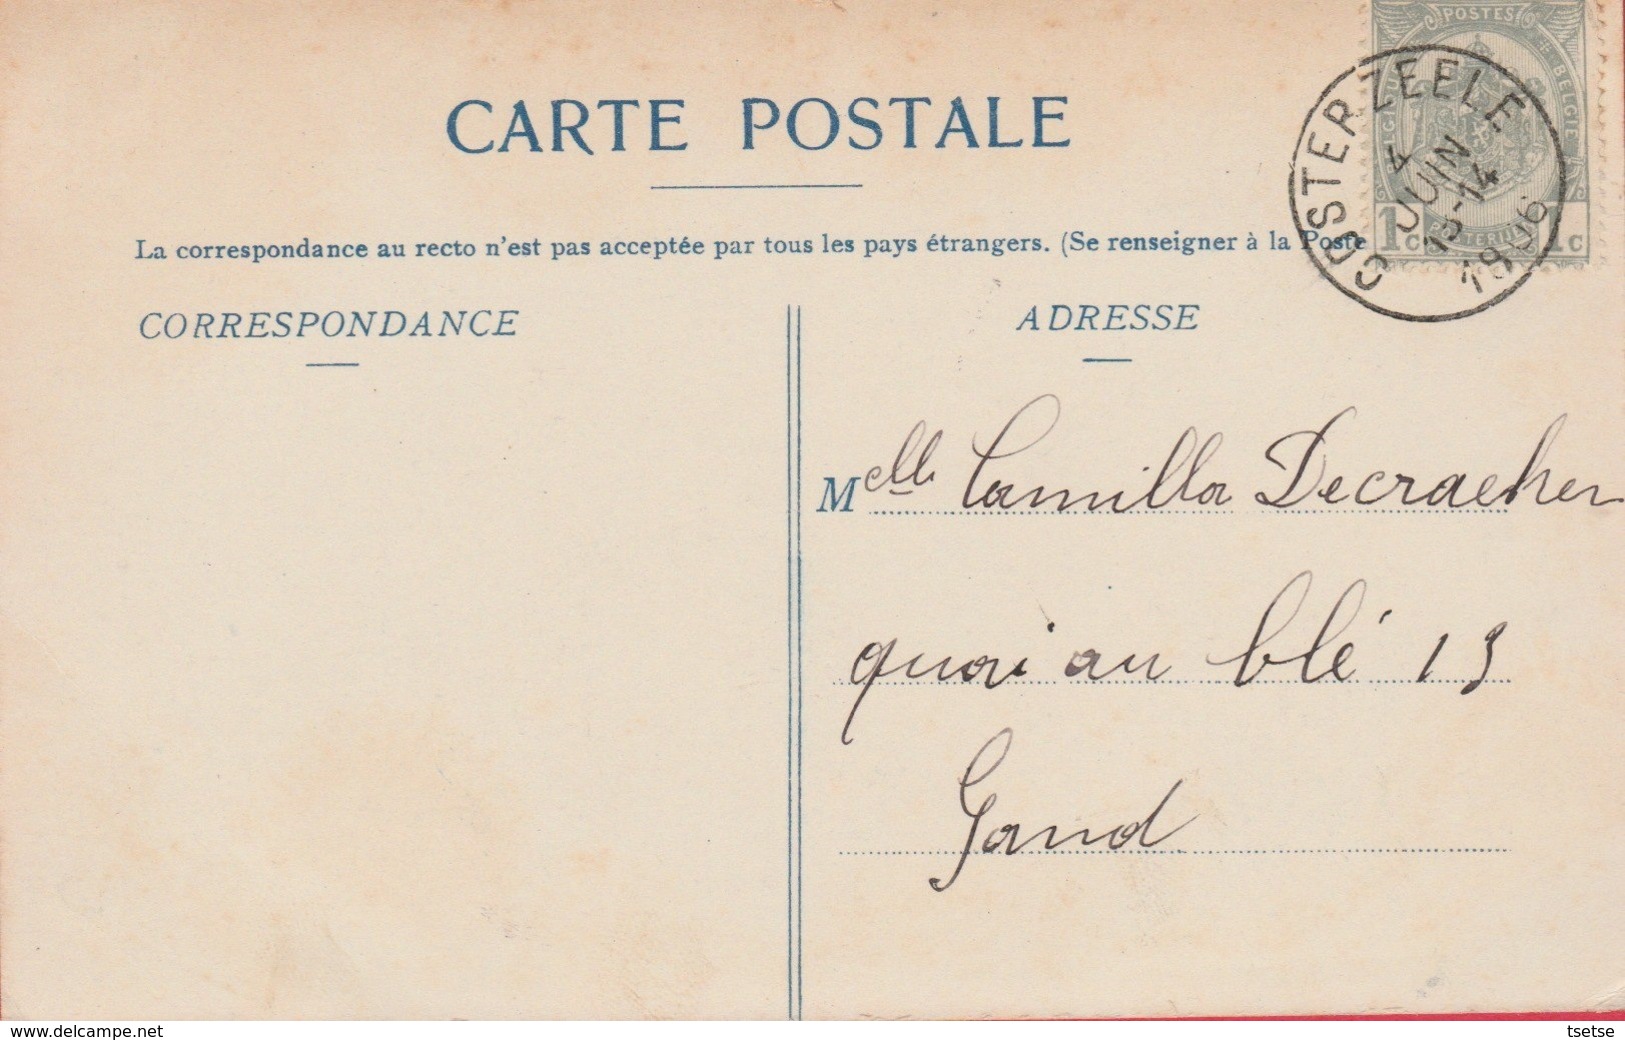 POSTES
BELGIE
CARTE POSTALE
OOSTERZEELE
4
JUIN
13-14
1906
1c 1c
La correspondance au recto n'est pas acceptée par tous les pays étrangers. (Se renseigner à la Poste
CORRESPONDANCE
ADRESSE
Melle Camilla Decraeker
quai au blé 13
Gand
delcampe.net
tsetse